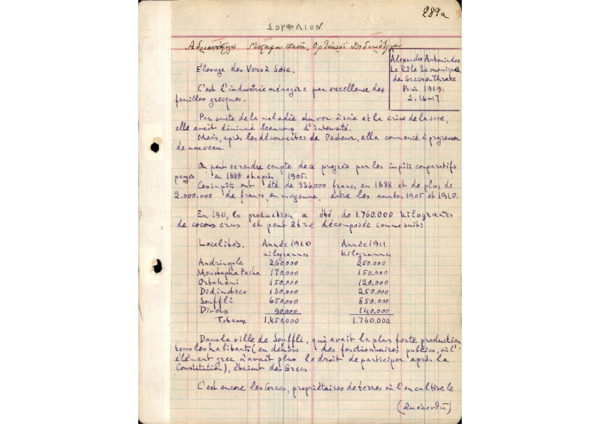 289a
ΣΟΥΦΛΙΟΝ
Alexandre Antoniades
Le Rôle Economique
des Grecs en Thrace
Paris 1919
Σ. 16-17
Elevage des Vers à Soie.
C'est l'industrie ménagère par excellence des
familles grecques.
Par suite de la maladie du ver à soie et la crise de la soie,
elle avait diminué beaucoup d'intensité.
Mais, après les découvertes de Pasteur, elle a commencé à progresser
de nouveau.
On peut se rendre compte de ce progrès par les impôts comparatifs
payés en 1888 et après 1905.
Ces impôts ont été de 336.000 francs en 1888 et de plus de
2.000.000 de francs, en moyenne, entre les années 1905 et 1910.
En 1911, la production a été de 1.760.000 kilogrammes
de cocons crus et peut être décomposée comme suit:
Localités. Année 1910 Année 1911
kilogrammes kilogrammes
Andrinople 250.000
Moustapha Pacha 170.000 150.000
Ortakeui 150.000 120.000
Didimoteco 130.000 250.000
Souffli 650.000 850.000
Divers 90.000 140.000
Totaux 1.450.000 1.760.000
Dans la ville de Souffli, qui avait la plus forte production
tous les habitants (en dehors des fonctionnaires publics, où l'
élément grec n'avait plus le droit de participer après la
Constitution), étaient des Grecs
C'est encore les Grecs, propriétaires de terres où l'on cultive le